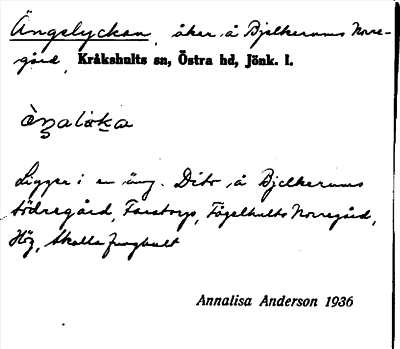 Ängslyckan, åker å Bjelkerums Norre-
gård, Kråkshults sn, Östra hd, Jönk. l.
Ligger i en äng. Dito å Bjelkerums
Södregård, Farstorp, Fågelhults Norregård,
Hög, Skalla Ljunghult
Annalisa Anderson 1936